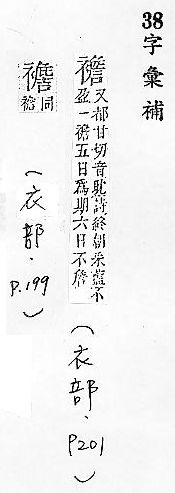 38字彙補
襜又都甘切音耽詩終朝采藍不
盈一襜五日為期六日不詹
（衣部．P201）
同
襜
（衣部．P.199）